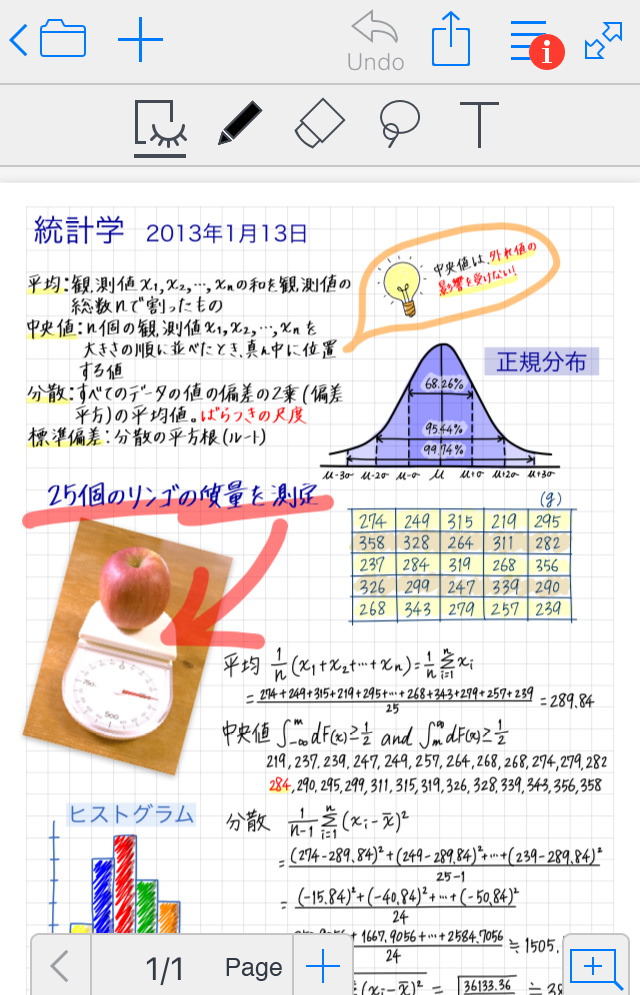 Undo
i
T
統計学 2013年1月13日
平均:観測値x₁,x₂,…,xₙの和を観測値の
総数nで割ったもの
中央値:n個の観測値x₁,x₂,…,xₙを
大きさの順に並べたとき、真ん中に位置
する値
分散:すべてのデータの値の偏差の2乗(偏差
平方)の平均値。ばらつきの尺度
標準偏差:分散の平方根(ルート)
中央値は、外れ値の
影響を受けない!
正規分布
68.26%
95.44%
99.74%
μ-3σ μ-2σ μ-σ μ μ+σ μ+2σ μ+3σ
25個のリンゴの質量を測定
(g)
274 249 315 219 295
358 328 264 311 282
237 284 319 268 356
326 299 247 339 290
268 343 279 257 239
平均 1/n (x₁+x₂+…+xₙ)=1/n Σⁿᵢ₌₁ xᵢ
= (274+249+315+219+295+…+268+343+279+257+239)/25 =289.84
中央値 ∫₋∞ᵐ dF(x)≥1/2 and ∫ₘ^∞ dF(x)≥1/2
219,237,239,247,249,257,264,268,268,274,279,282
284,290,295,299,311,315,319,326,328,339,343,356,358
分散 1/(n-1) Σⁿᵢ₌₁ (xᵢ-x̄)²
= ((274-289.84)²+(249-289.84)²+…+(239-289.84)²)/(25-1)
= ((-15.84)²+(-40.84)²+…+(-50.84)²)/24
+1667.9056+…+2584.7056/24 ≒1505.
(xᵢ-x̄)² = √36133.36 ≒ 38
ヒストグラム
1/1 Page